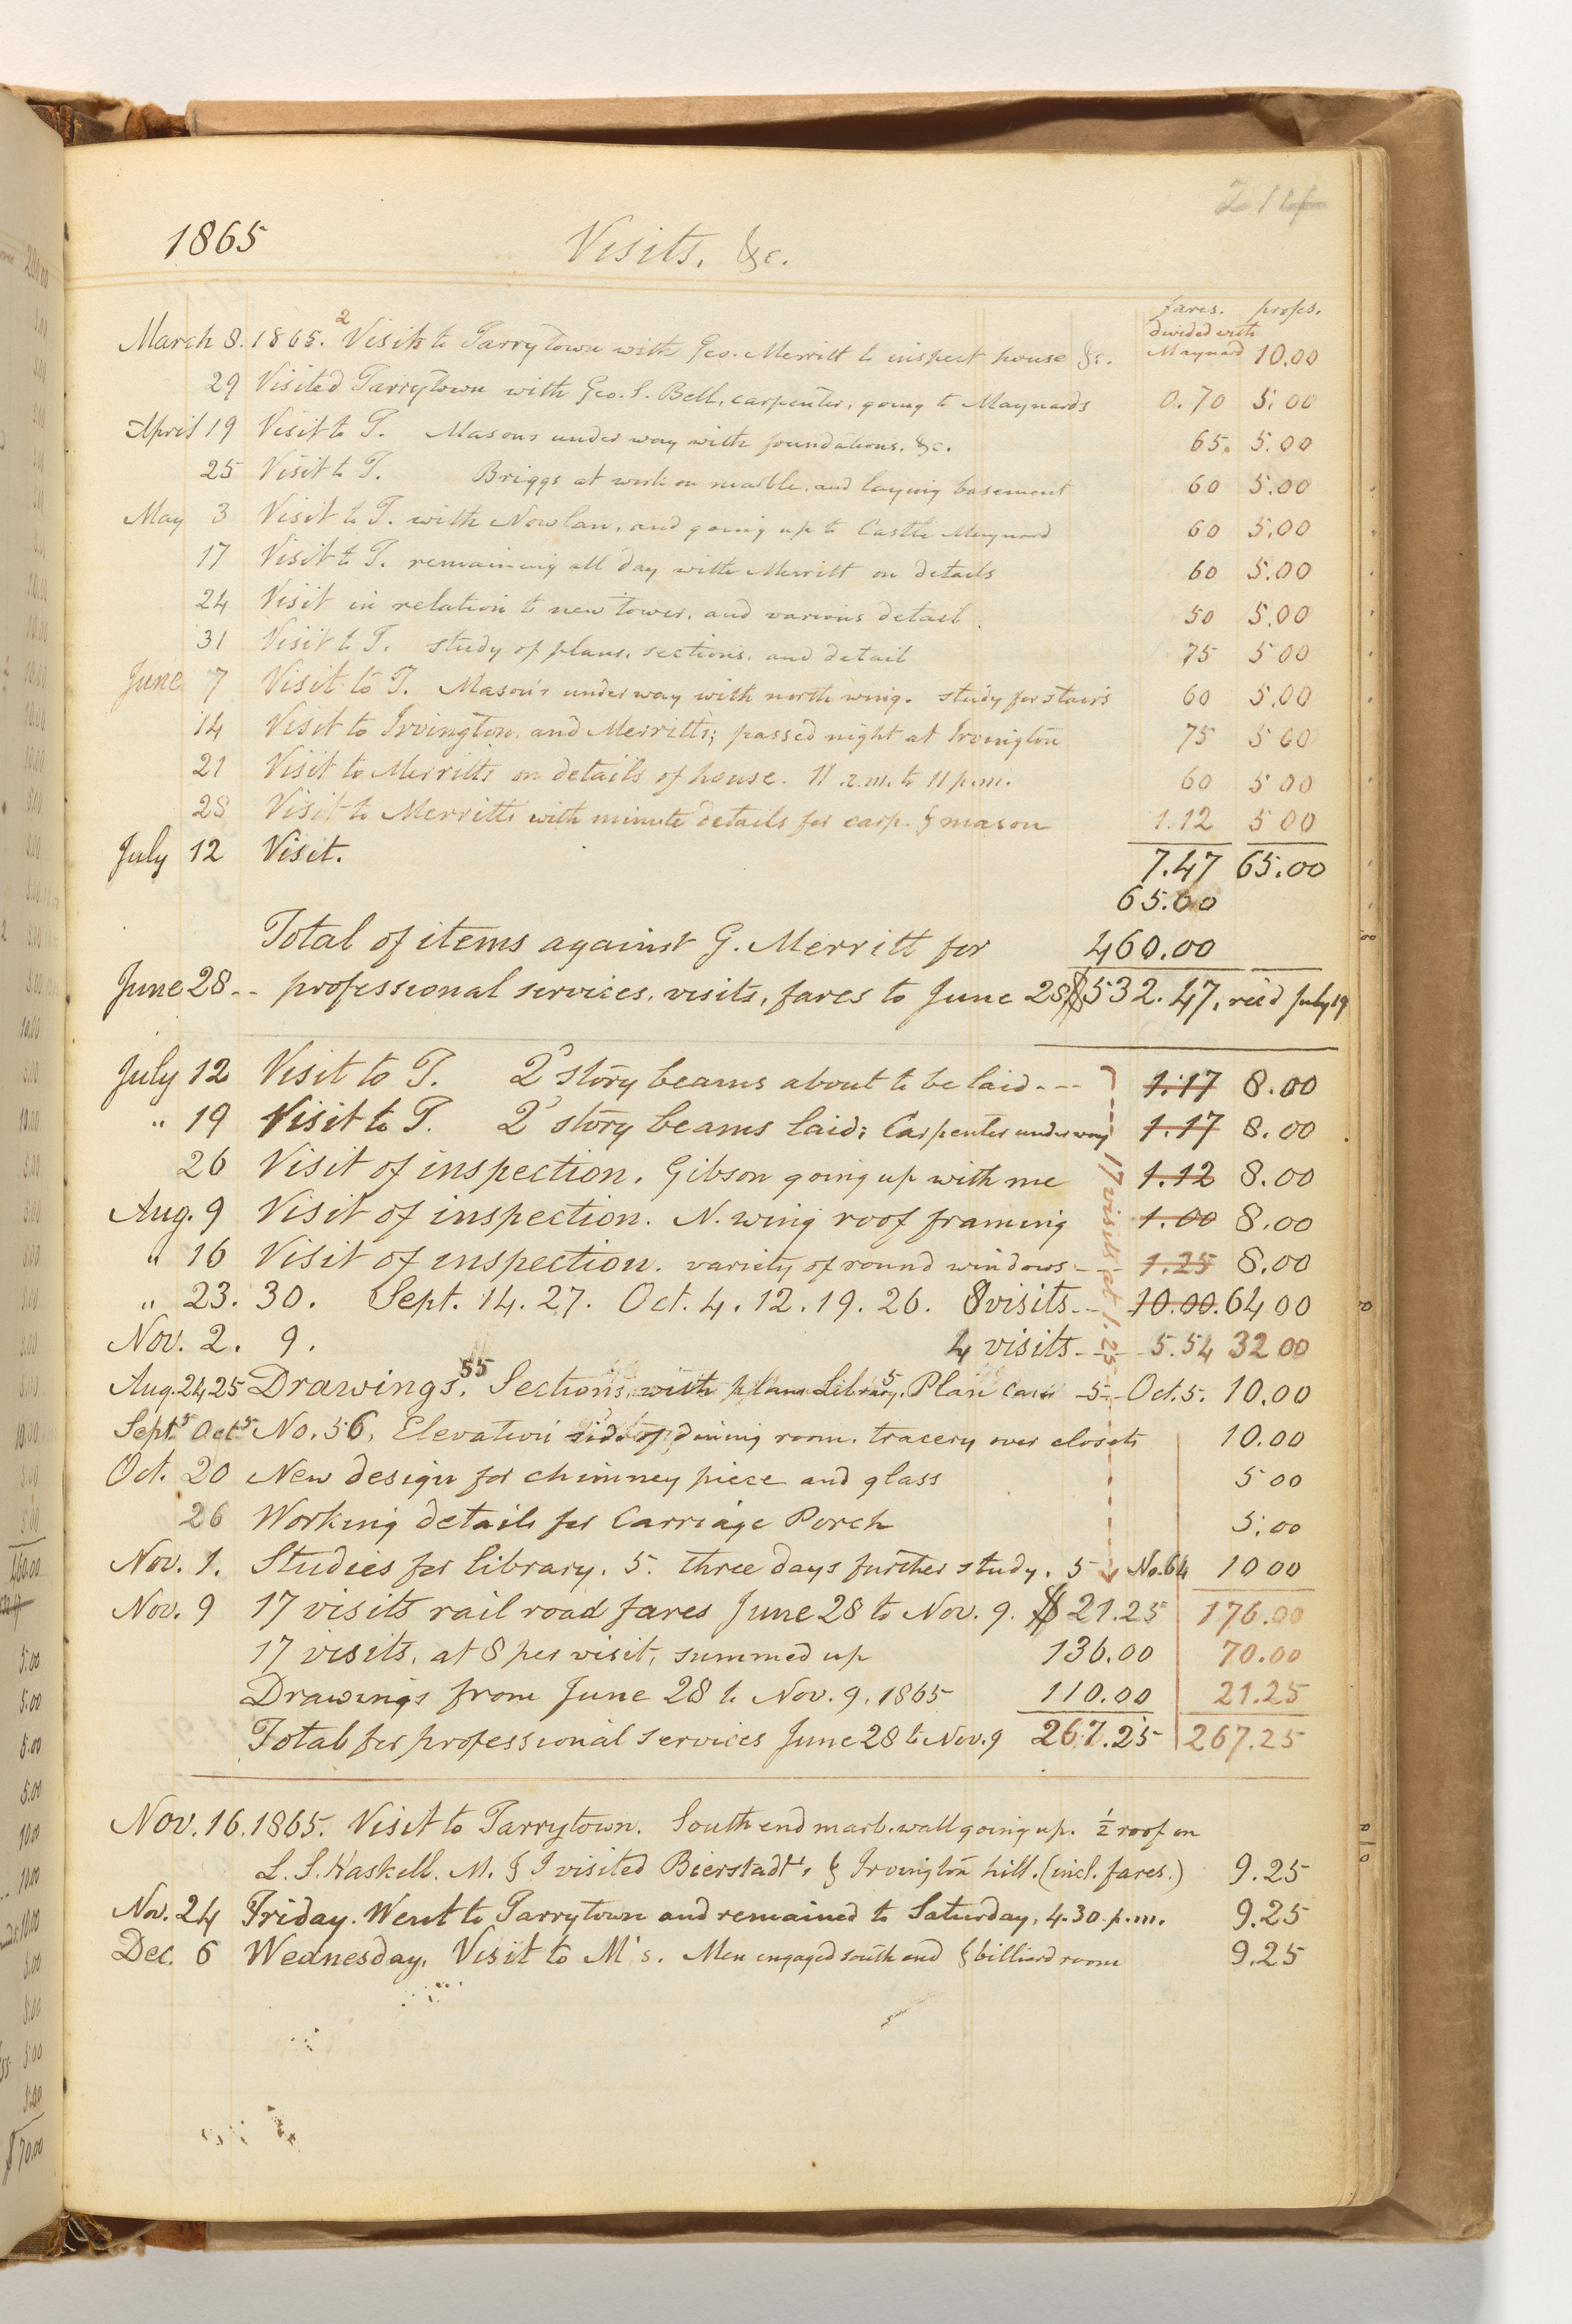 214
1865 Visits, &c.
fares. profes.
March 8. 1865. 2 Visits to Tarrytown with Geo. Merritt to inspect house &c. divided with Maynard 10.00
29 Visited Tarrytown with Geo. S. Bell, carpenter, going to Maynards 0.70 5.00
April 19 Visit to T. Masons under way with foundations. &c. 65. 5.00
25 Visit to T. Briggs at work on marble, and laying basement 60 5.00
May 3 Visit to T. with Nowlan, and going up to Castle Maynard 60 5.00
17 Visit to T. remaining all day with Merritt on details 60 5.00
24 Visit in relation to new tower, and various detail. 50 5.00
31 Visit to T. study of plans, sections, and detail 75 5 00
June 7 Visit to T. Mason's under way with north wing. study for stairs 60 5.00
14 Visit to Irvington, and Merritts; passed night at Irvington 75 5 00
21 Visit to Merritts on details of house. 11 a.m. to 11 p.m. 60 5 00
28 Visit to Merritts with minute details for carp. & mason 1.12 5 00
July 12 Visit. 7.47 65.00
65.00
Total of items against G. Merritt for 460.00
June 28 -- professional services, visits, fares to June 28 $532.47, rec'd July 19
July 12 Visit to T. 2d story beams about to be laid --- 1.17 8.00
" 19 Visit to T. 2d story beams laid; Carpenter underway 1.17 8.00
26 Visit of inspection. Gibson going up with me 1.12 8.00
Aug. 9 Visit of inspection. N. wing roof framing 1.00 8.00
" 16 Visit of inspection. variety of round windows -- 1.25 8.00
17 visits at 1.25
" 23. 30. Sept. 14. 27. Oct. 4. 12. 19. 26. 8 visits -- 10.00. 64 00
Nov. 2. 9. 4 visits --- 5.54 32 00
Aug. 24 25 Drawings, 55 Sections, with plans Library, 5 Plan -5- Oct. 5. 10.00
Sept. 5 Oct. 5 No. 56, Elevation side of dining room. tracery over closets 10.00
Oct. 20 New design for chimney piece and glass 5 00
26 Working details for Carriage Porch 5.00
Nov. 1. Studies for library. 5. three days further study. 5 No. 64 10 00
Nov. 9 17 visits rail road fares June 28 to Nov. 9. $21.25 176.00
17 visits, at 8 per visit, summed up 136.00 70.00
Drawings from June 28 to Nov. 9. 1865 110.00 21.25
Total for professional services June 28 to Nov. 9 267.25 267.25
Nov. 16. 1865. Visit to Tarrytown. South end marb. wall going up. ½ roof on
L. S. Haskell. M. & I visited Bierstadt's & Irvington hill. (incl. fares.) 9.25
Nov. 24 Friday. Went to Tarrytown and remained to Saturday, 4.30 p.m. 9.25
Dec. 6 Wednesday, Visit to M's. Men engaged south end & billiard room 9.25